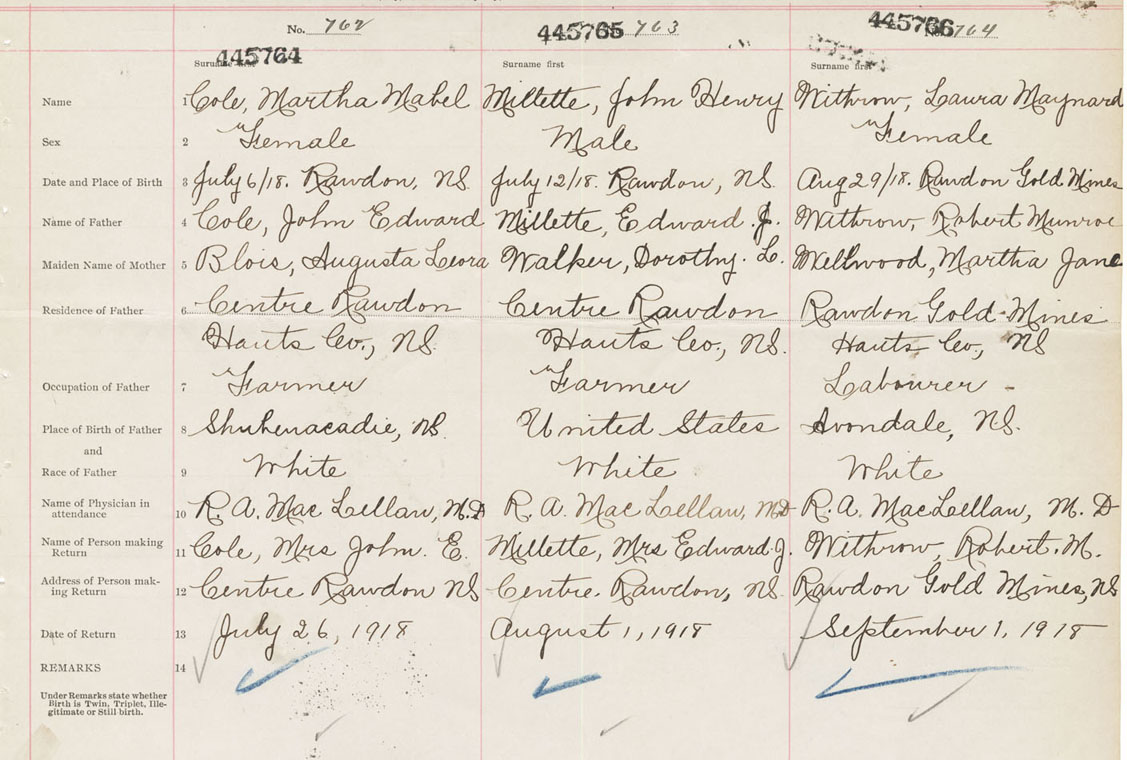 No. 762 445765 763 445766 No. 764
445764
Surname first Surname first Surname first
Name 1 Cole, Martha Mabel Millette, John Henry Withrow, Laura Maynard
Sex 2 Female Male Female
Date and Place of Birth 3 July 6/18. Rawdon, NS. July 12/18. Rawdon, NS. Aug 29/18. Rawdon Gold Mines
Name of Father 4 Cole, John Edward Millette, Edward J. Withrow, Robert Munroe
Maiden Name of Mother 5 Blois, Augusta Leora Walker, Dorothy. L. Wellwood, Martha Jane
Residence of Father 6 Centre Rawdon Centre Rawdon Rawdon Gold Mines
Hants Co., NS. Hants Co., NS. Hants Co., NS
Occupation of Father 7 Farmer Farmer Labourer
Place of Birth of Father 8 Shubenacadie, NS. United States Avondale, NS.
and
Race of Father 9 White White White
Name of Physician in
attendance 10 R. A. Mac Lellan, M.D R. A. Mac Lellan, MD R. A. MacLellan, M. D
Name of Person making
Return 11 Cole, Mrs John. E. Millette, Mrs Edward J. Withrow, Robert. M.
Address of Person mak-
ing Return 12 Centre Rawdon NS Centre. Rawdon, NS. Rawdon Gold Mines, NS
Date of Return 13 July 26, 1918 August 1, 1918 September 1, 1918
REMARKS 14
Under Remarks state whether
Birth is Twin, Triplet, Ille-
gitimate or Still birth.